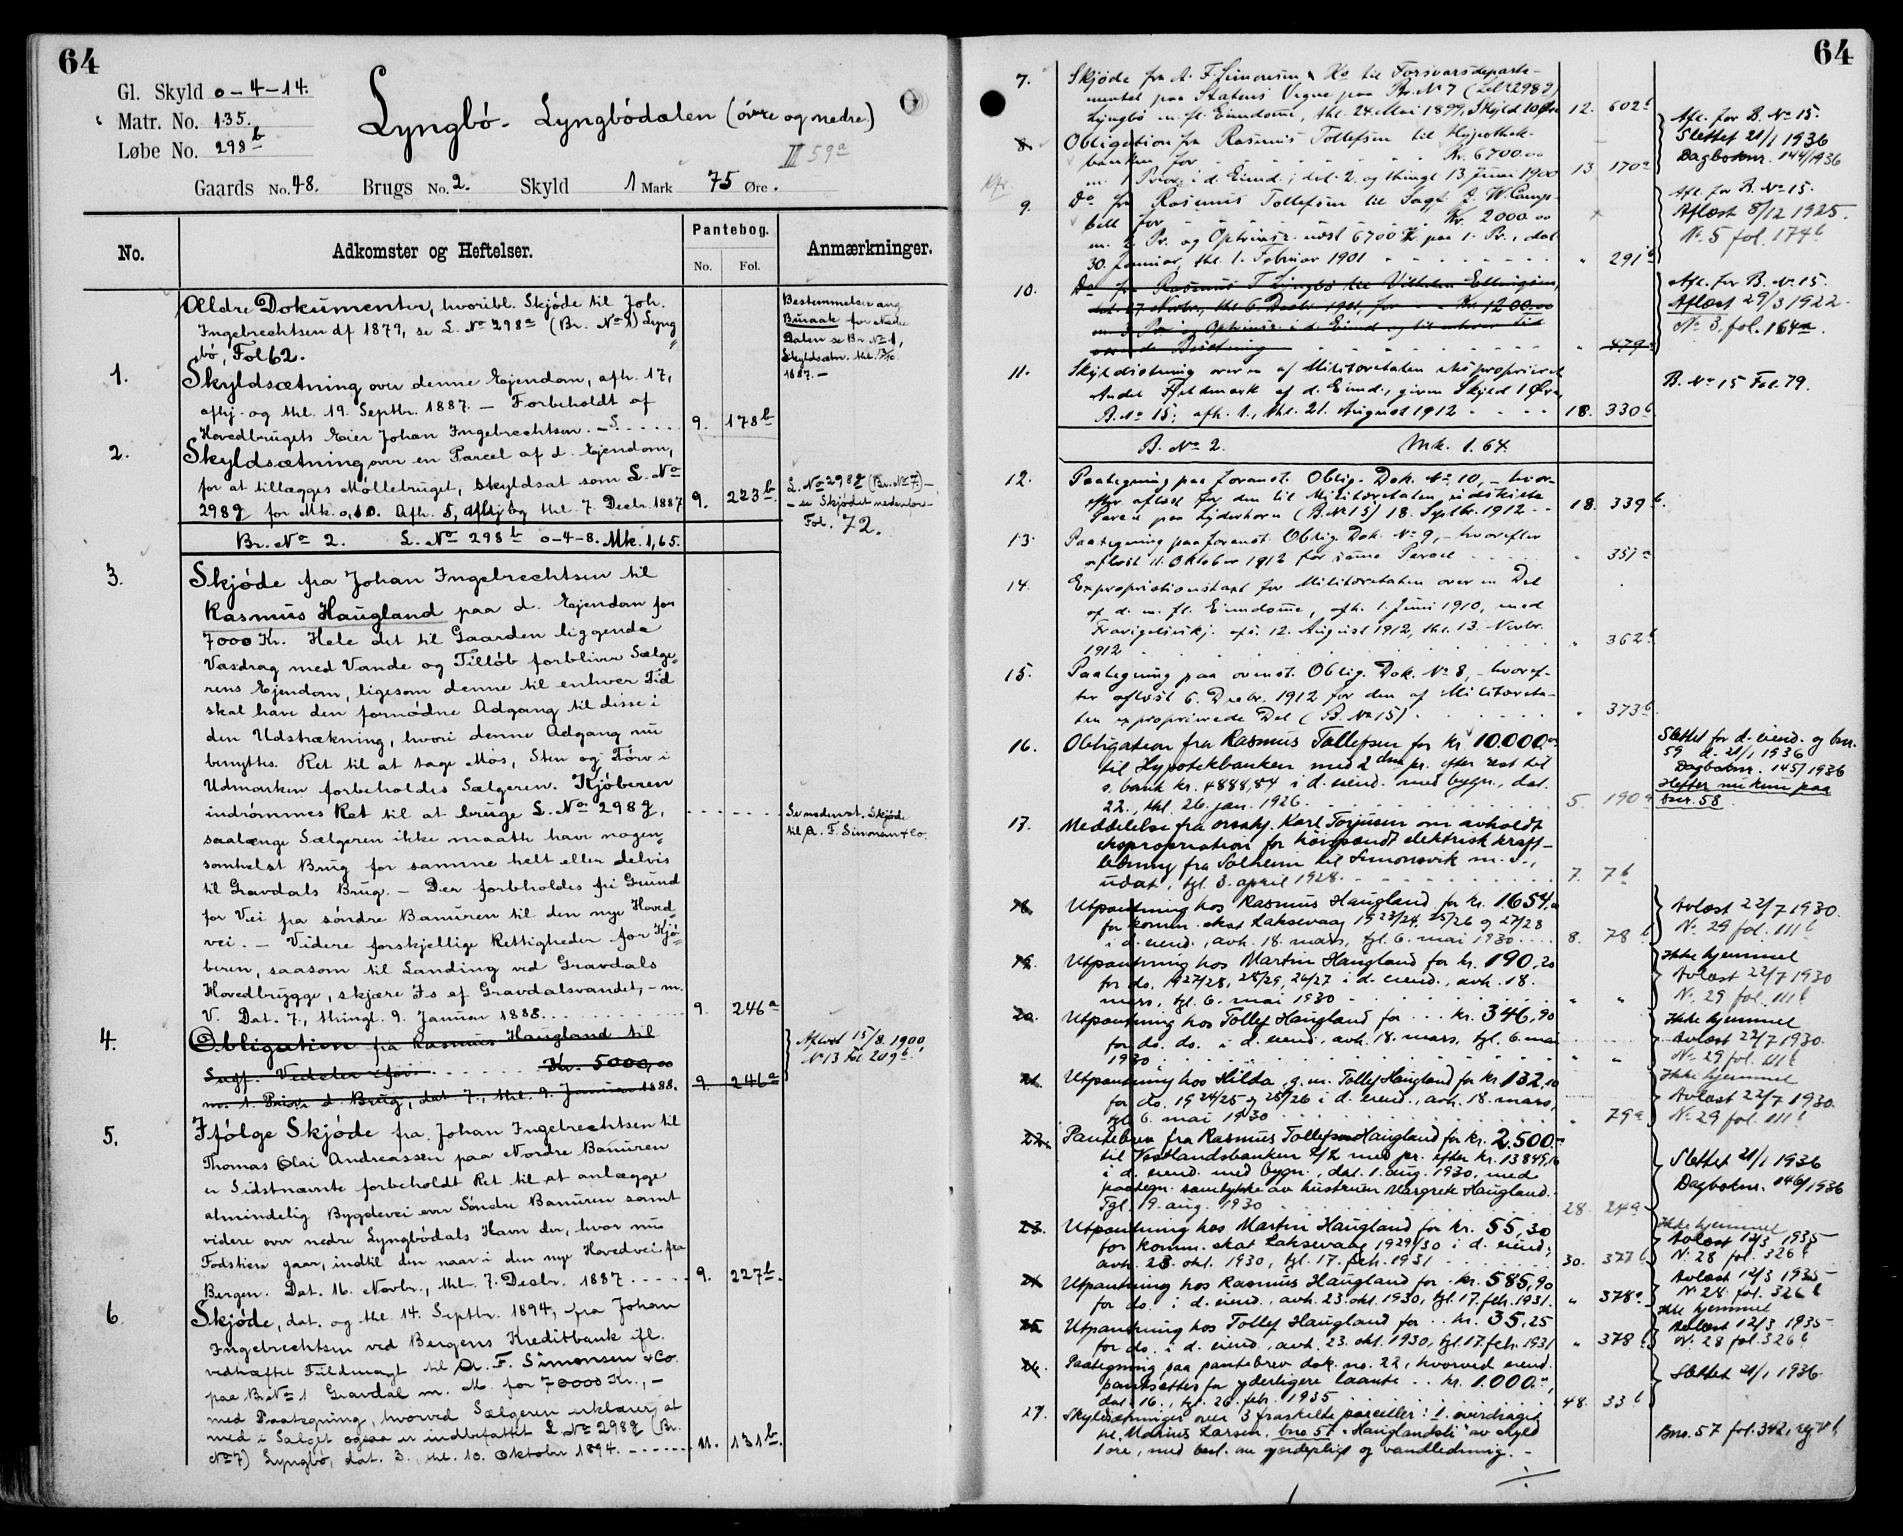 64
Gl. Skyld 0-4-14.
Matr. No. 135.
Løbe No. 298 b
Lyngbö - Lyngbödalen (övre og nedre)
III 59a
Gaards No. 48. Brugs No. 2. Skyld 1 Mark 75 Øre.
No. Adkomster og Heftelser. Pantebog. Anmærkninger.
No. Fol.
Ældre Dokumenter, hvoribl. Skjöde til Joh.
Ingebrechtsen af 1879, se L. No 298a (Br. No 1) Lyng
bö, Fol 62.
Bestemmelser ang
Buraak for nedre
Dalen se Br. No 1,
Skyldsætn. thl. 13/10
1887. —
1. Skyldsætning over denne Ejendom, afh. 17,
afhj. og thl. 19. Septbr. 1887. — Forbeholdt af
Hovedbrugets Eier Johan Ingebrechtsen. 9. 178b
2. Skyldsætning over en Parcel af d. Ejendom,
for at tillægges Möllebruget, skyldsat som L. No
298g for Mk. 0,10. Afh. 5, afhj. og thl. 7. Decbr. 1887 9. 223b
L. No 298g (Br. No 7) —
— se Skjödet nedenfor —
Fol. 72.
Br. No 2. L. No 298b 0-4-8. Mk. 1,65.
3. Skjöde fra Johan Ingebrechtsen til
Rasmus Haugland paa d. Ejendom for
7000 Kr. Hele det til Gaarden liggende
Vasdrag med Vande og Tillöb forbliver Sælge-
rens Ejendom, ligesom denne til enhver Tid
skal have den fornödne Adgang til disse i
den Udstrækning, hvori denne Adgang nu
benyttes. Ret til at tage Mos, Sten og Törv i
Udmarken forbeholdes Sælgeren. Kjöberen
indrömmes Ret til at bruge L. No 298g,
saalænge Sælgeren ikke maatte have nogen-
somhelst Brug for samme helt eller delvis
til Gravdals Brug. — Der forbholdes fri Grund
for Vei fra söndre Banuren til den nye Hoved-
vei. — Videre forskjellige Rettigheder for Kjö-
beren, saasom til Landing ved Gravdals
Hovedbrygge, skjære Is af Gravdalsvandet, — m.
V. Dat. 7, thingl. 9. Januar 1888. 9. 246a
Se nedenst. Skjöde
til A. F. Simonsen & Co.
4. Obligation fra Rasmus Haugland til
Sagf. Vedeler for Kr. 5000,00
m. 1. Prior. i d. Brug, dat 7., thl. 9. Januar 1888. 9. 246a
Aflæst 15/8 1900
No 13 Fol 209b.
5. Ifölge Skjöde fra Johan Ingebrechtsen til
Thomas Olai Andreassen paa Nordre Banuren
er Sidstnævnte forbeholdt Ret til at anlægge
almindelig Bygdevei over Söndre Banuren samt
videre over nedre Lyngbödals Havn der, hvor nu
Fodstien gaar, indtil den naar i den nye Hovedvei fra
Bergen. Dat. 16. Novbr., thl. 7. Decbr. 1887. 9. 227b.
6. Skjöde, dat. og thl. 14. Septbr. 1894, fra Johan
Ingebrechtsen ved Bergens Kreditbank ifl.
vedhæftet Fuldmagt til A. F. Simonsen & Co.
paa Br No 1 Gravdal m. M. for 70000 Kr., —
med Paategning, hvorved Sælgeren erklærer, at
med i Salget ogsaa er indbefattet L No 298g (Br.
No 7) Lyngbö, dat. 3., thl. 10. Oktober 1894. 11. 131b.
64
7. Skjöde fra A. F. Simonsen & Ko til Forsvarsdeparte-
mentet paa Statens Vegne paa Br. No 7 (Lbr 298g)
Lyngbö m. fl. Eiendome, thl. 24. Mai 1899. Skyld 10 Öre 12. 602b
8. Obligation fra Rasmus Tollefsen til Hypothek-
banken for Kr. 6700.00
m. 1 Prior. i d. Eiend.; dat. 2. og thingl. 13 Juni 1900 13. 170a
Afl. for B. No 15.
Slettet 21/1 1936
Dagboknr. 144/1936
9. Do fra Rasmus Tollefsen til Sagf. J. W. Camp-
bell for Kr. 2000.00
m. 2 Pr. og Optrinsr. næst 6700 Kr. paa 1. Pr., dat.
30. Januar, thl. 1. Februar 1901 " 291b
Afl. for B. No 15.
Aflæst 8/12 1925.
No. 5 fol. 174b
10. Do fra Rasmus T Lyngbö til Vilhelm Ellingsen,
dat. 27. Novbr, thl. 6 Decbr 1901, for Kr. 1200.00
" 479
Afl. for B. No 15.
Aflæst 29/3 1922.
No. 3. fol. 164a.
11. Skyldsætning over en af Militæretaten exproprieret
Andel Fjeldmark af d. Eiend., given Skyld 1 Öre,
B. No 15; afh. 1., thl. 21. August 1912 18. 330b
B. No 15 Fol. 79.
B. No 2. Mk. 1.64.
12. Paategning paa foranst. Oblig. Dok. No 10, — hvor-
efter aflæst for den til Militæretaten udskilte
Parcel paa Lyderhorn (B. No 15) 18. Septbr. 1912 18. 339b.
13. Paategning paa foranst. Oblig. Dok. No 9, — hvorefter
aflæst 11. Oktober 1912 for samme Parcel " 351a
14. Expropriationstaxt for Militæretaten over en Del
af d. m. fl. Eiendome, afh. 1. Juni 1910, med
Fravigelseskj. afs. 12. August 1912, thl. 13. Novbr.
1912 " 362b
15. Paategning paa ovenst. Oblig. Dok. No 8, — hvoref-
ter aflæst 6. Decbr. 1912 for den af Militæreta-
ten exproprierede Del (B. No 15) " 373b.
16. Obligation fra Rasmus Tollefsen for kr. 10.000.00
til Hypotekbanken med 2den pr. efter rest til
s. bank kr. 4888,84 i d. eiend. med bygn., dat.
22., thl. 26. jan. 1926. 5. 190a
Slettet for d. eiend. og bnr.
59 d. 21/1 1936
Dagboknr. 145/1936
Hefter nu kun paa
bnr. 58
17. Meddelelse fra orsakf. Karl Torjusen om avholdt
ekspropriation for höispændt elektrisk kraft-
ledning fra Solheim til Simonsvik m. v.,
udat, tgl. 3. april 1928. 7. 7b
18. Utpantning hos Rasmus Haugland for kr. 1654.
for komm. skat Laksevaag 1923/24, 25/26 og 27/28
i d. eiend., avh. 18. mars, tgl. 6. mai 1930 8. 78b
Avlæst 22/7 1930.
No. 29 fol. 111b
19. Utpantning hos Martin Haugland for kr. 190,20
for do. 1927/28, 28/29, 26/27 i d. eiend., avh. 18.
mars, tgl. 6. mai 1930 " "
Ikke hjemmel
Avlæst 22/7 1930
No. 29 fol. 111b
20. Utpantning hos Tollef Haugland for kr. 346,90
for do. do. i d. eiend., avh. 18. mars, tgl. 6. mai
1930 " "
Ikke hjemmel
Avlæst 22/7 1930.
No. 29 fol. 111b
21. Utpantning hos Hilda, g. m. Tollef Haugland for kr. 132,10
for do. 1924/25 og 25/26 i d. eiend., avh. 18. mars,
tgl. 6. mai 1930 " 79a
Ikke hjemmel
Avlæst 22/7 1930.
No. 29 fol. 111b
22. Pantebrev fra Rasmus Tollefsen Haugland for kr. 2.500.
til Vestlandsbanken A/L med pr. efter kr. 13849,16
i d. eiend. med bygn., dat. 1. aug. 1930, med
paategn. samtykke av hustruen Margrete Haugland.
Tgl. 19. aug. 1930 28. 24a
Slettet 21/1 1936
Dagboknr. 146/1936
23. Utpantning hos Martin Haugland for kr. 55,30
for komm. skat Laksevaag 1929/30 i d. eiend.,
avh. 23. okt. 1930, tgl. 17. feb. 1931 30. 377b
Ikke hjemmel
Avlæst 12/3 1935
No. 28 fol. 326b
24. Utpantning hos Rasmus Haugland for kr. 585,90
for do. i d. eiend., avh. 23. okt. 1930, tgl. 17. feb. 1931. " 378a
Avlæst 12/3 1935
No. 28 fol. 326b
25. Utpantning hos Tollef Haugland for kr. 35,25
for do. i d. eiend., avh. 23. okt. 1930, tgl. 17. feb. 1931 " 378b
Ikke hjemmel
Avlæst 12/3 1935
No. 28 fol. 326b
26. Paategning paa pantebrev dok. no. 22, hvorved eiend.
pantsettes for yderligere laante kr. 1.000.00,
dat. 16., tgl. 26. feb. 1935 48. 33b
Slettet 21/1 1936.
27. Skyldsætninger over 3 fraskilte parceller: 1. overdraget
til Marius Larsen, bno 57 "Hauglandsli" av skyld
1 öre, med best. om gjerdeplikt og vandledning. —
Bno. 57 fol. 342,